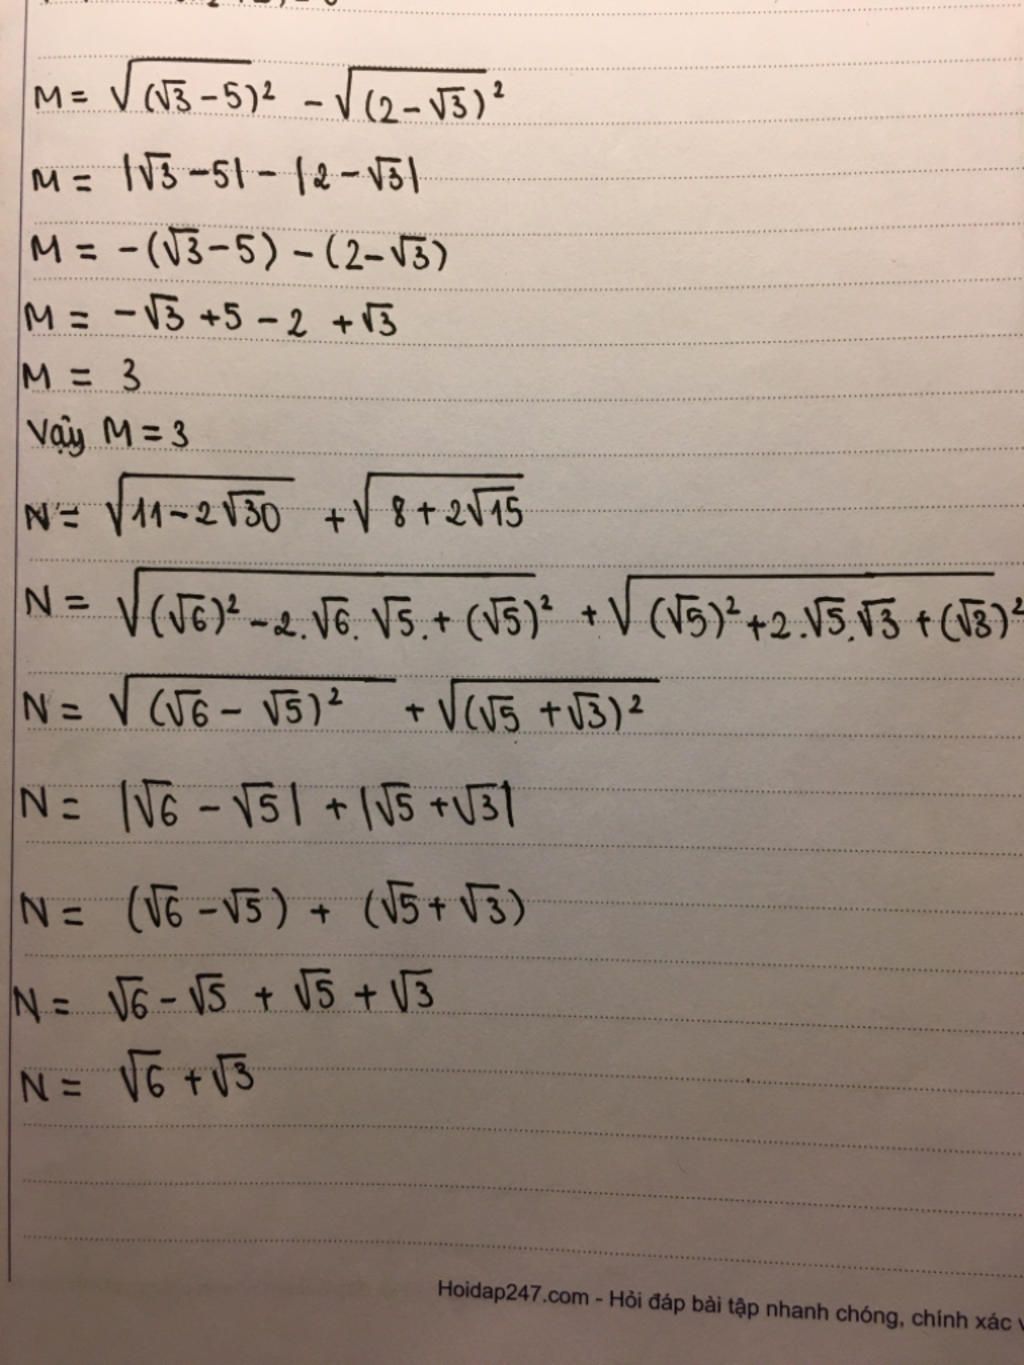 M = √(√3 - 5)² - √(2 - √3)²
M = |√3 - 5| - |2 - √3|
M = -(√3 - 5) - (2 - √3)
M = -√3 + 5 - 2 + √3
M = 3
Vậy M = 3
N = √11 - 2√30 + √8 + 2√15
N = √(√6)² - 2.√6.√5.+ (√5)² + √(√5)² + 2.√5.√3 + (√3)²
N = √(√6 - √5)² + √(√5 + √3)²
N = |√6 - √5| + |√5 + √3|
N = (√6 - √5) + (√5 + √3)
N = √6 - √5 + √5 + √3
N = √6 + √3
Hoidap247.com - Hỏi đáp bài tập nhanh chóng, chính xác